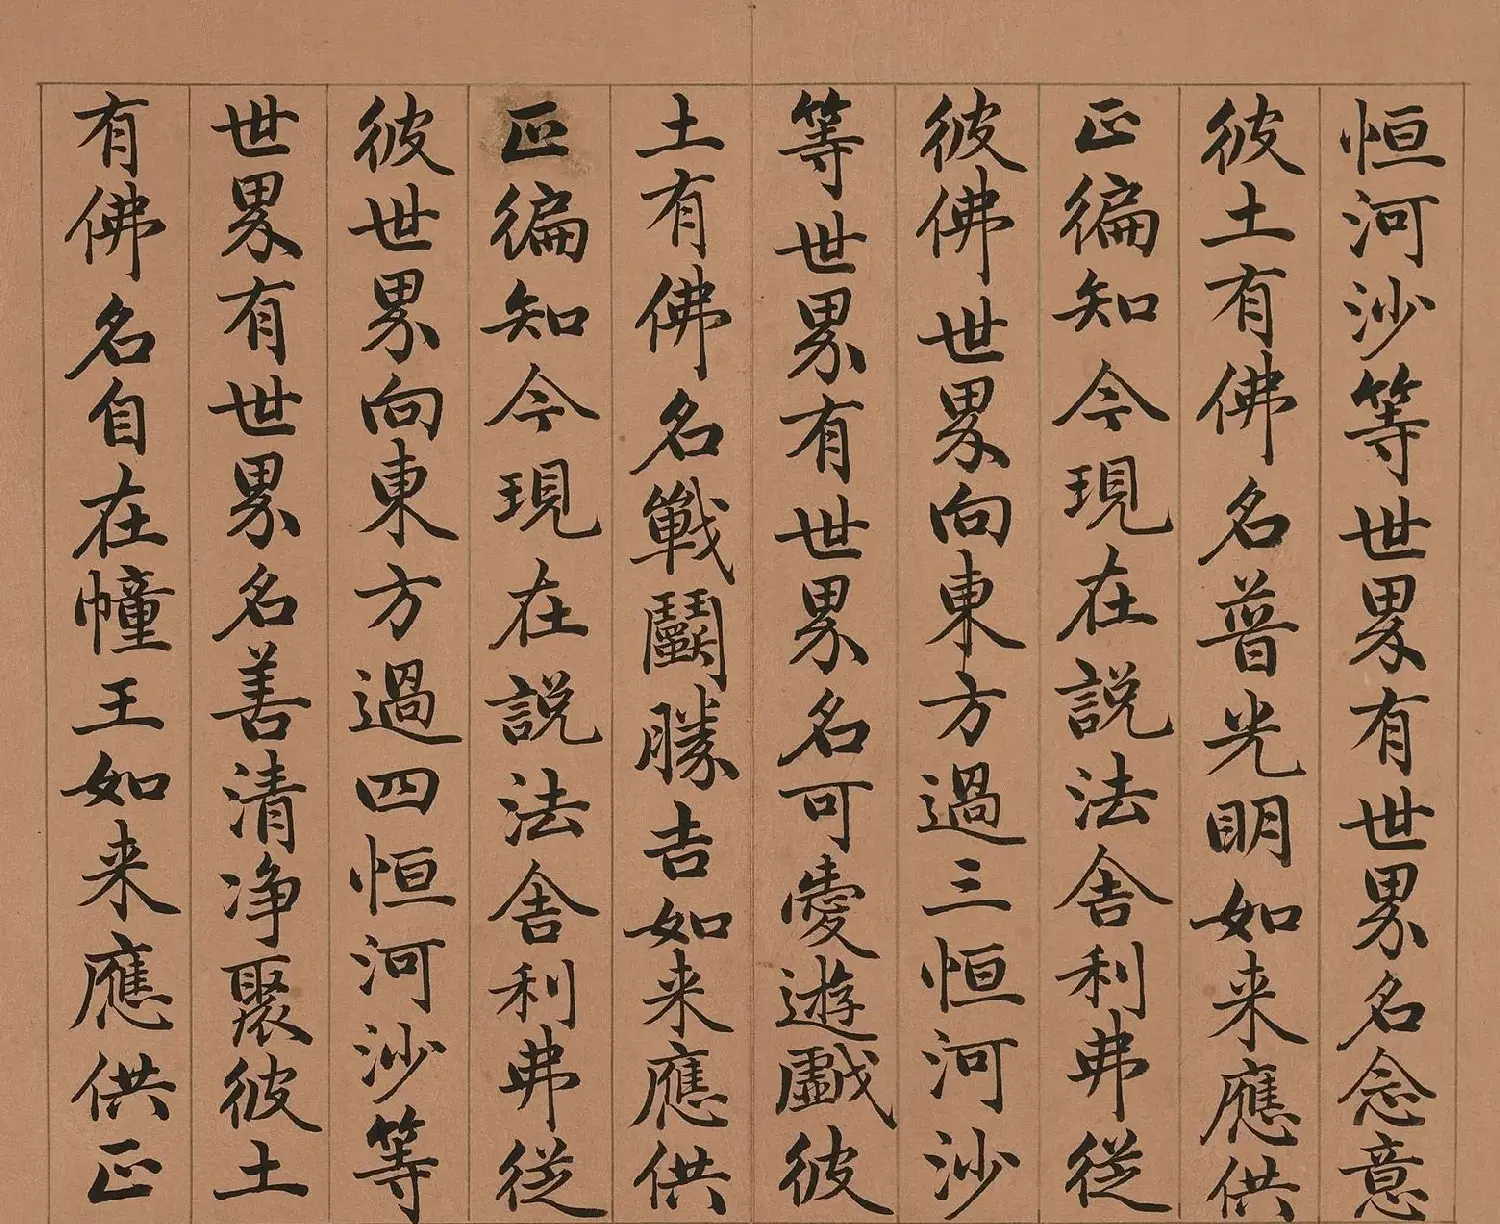 恒河沙等世界有世界名念意
彼土有佛名普光明如来應供
正徧知今現在説法舍利弗從
彼佛世界向東方過三恒河沙
等世界有世界名可愛遊戲彼
土有佛名戰鬭勝吉如来應供
正徧知今現在説法舍利弗從
彼世界向東方過四恒河沙等
世界有世界名善清净聚彼土
有佛名自在幢王如来應供正